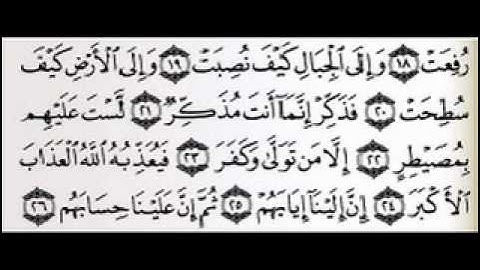 رُفِعَتْ ١٨ وَإِلَى ٱلْجِبَالِ كَيْفَ نُصِبَتْ ١٩ وَإِلَى ٱلْأَرْضِ كَيْفَ
سُطِحَتْ ٢٠ فَذَكِّرْ إِنَّمَآ أَنتَ مُذَكِّرٌ ٢١ لَّسْتَ عَلَيْهِم
بِمُصَيْطِرٍ ٢٢ إِلَّا مَن تَوَلَّىٰ وَكَفَرَ ٢٣ فَيُعَذِّبُهُ ٱللَّهُ ٱلْعَذَابَ
ٱلْأَكْبَرَ ٢٤ إِنَّ إِلَيْنَآ إِيَابَهُمْ ٢٥ ثُمَّ إِنَّ عَلَيْنَا حِسَابَهُم ٢٦